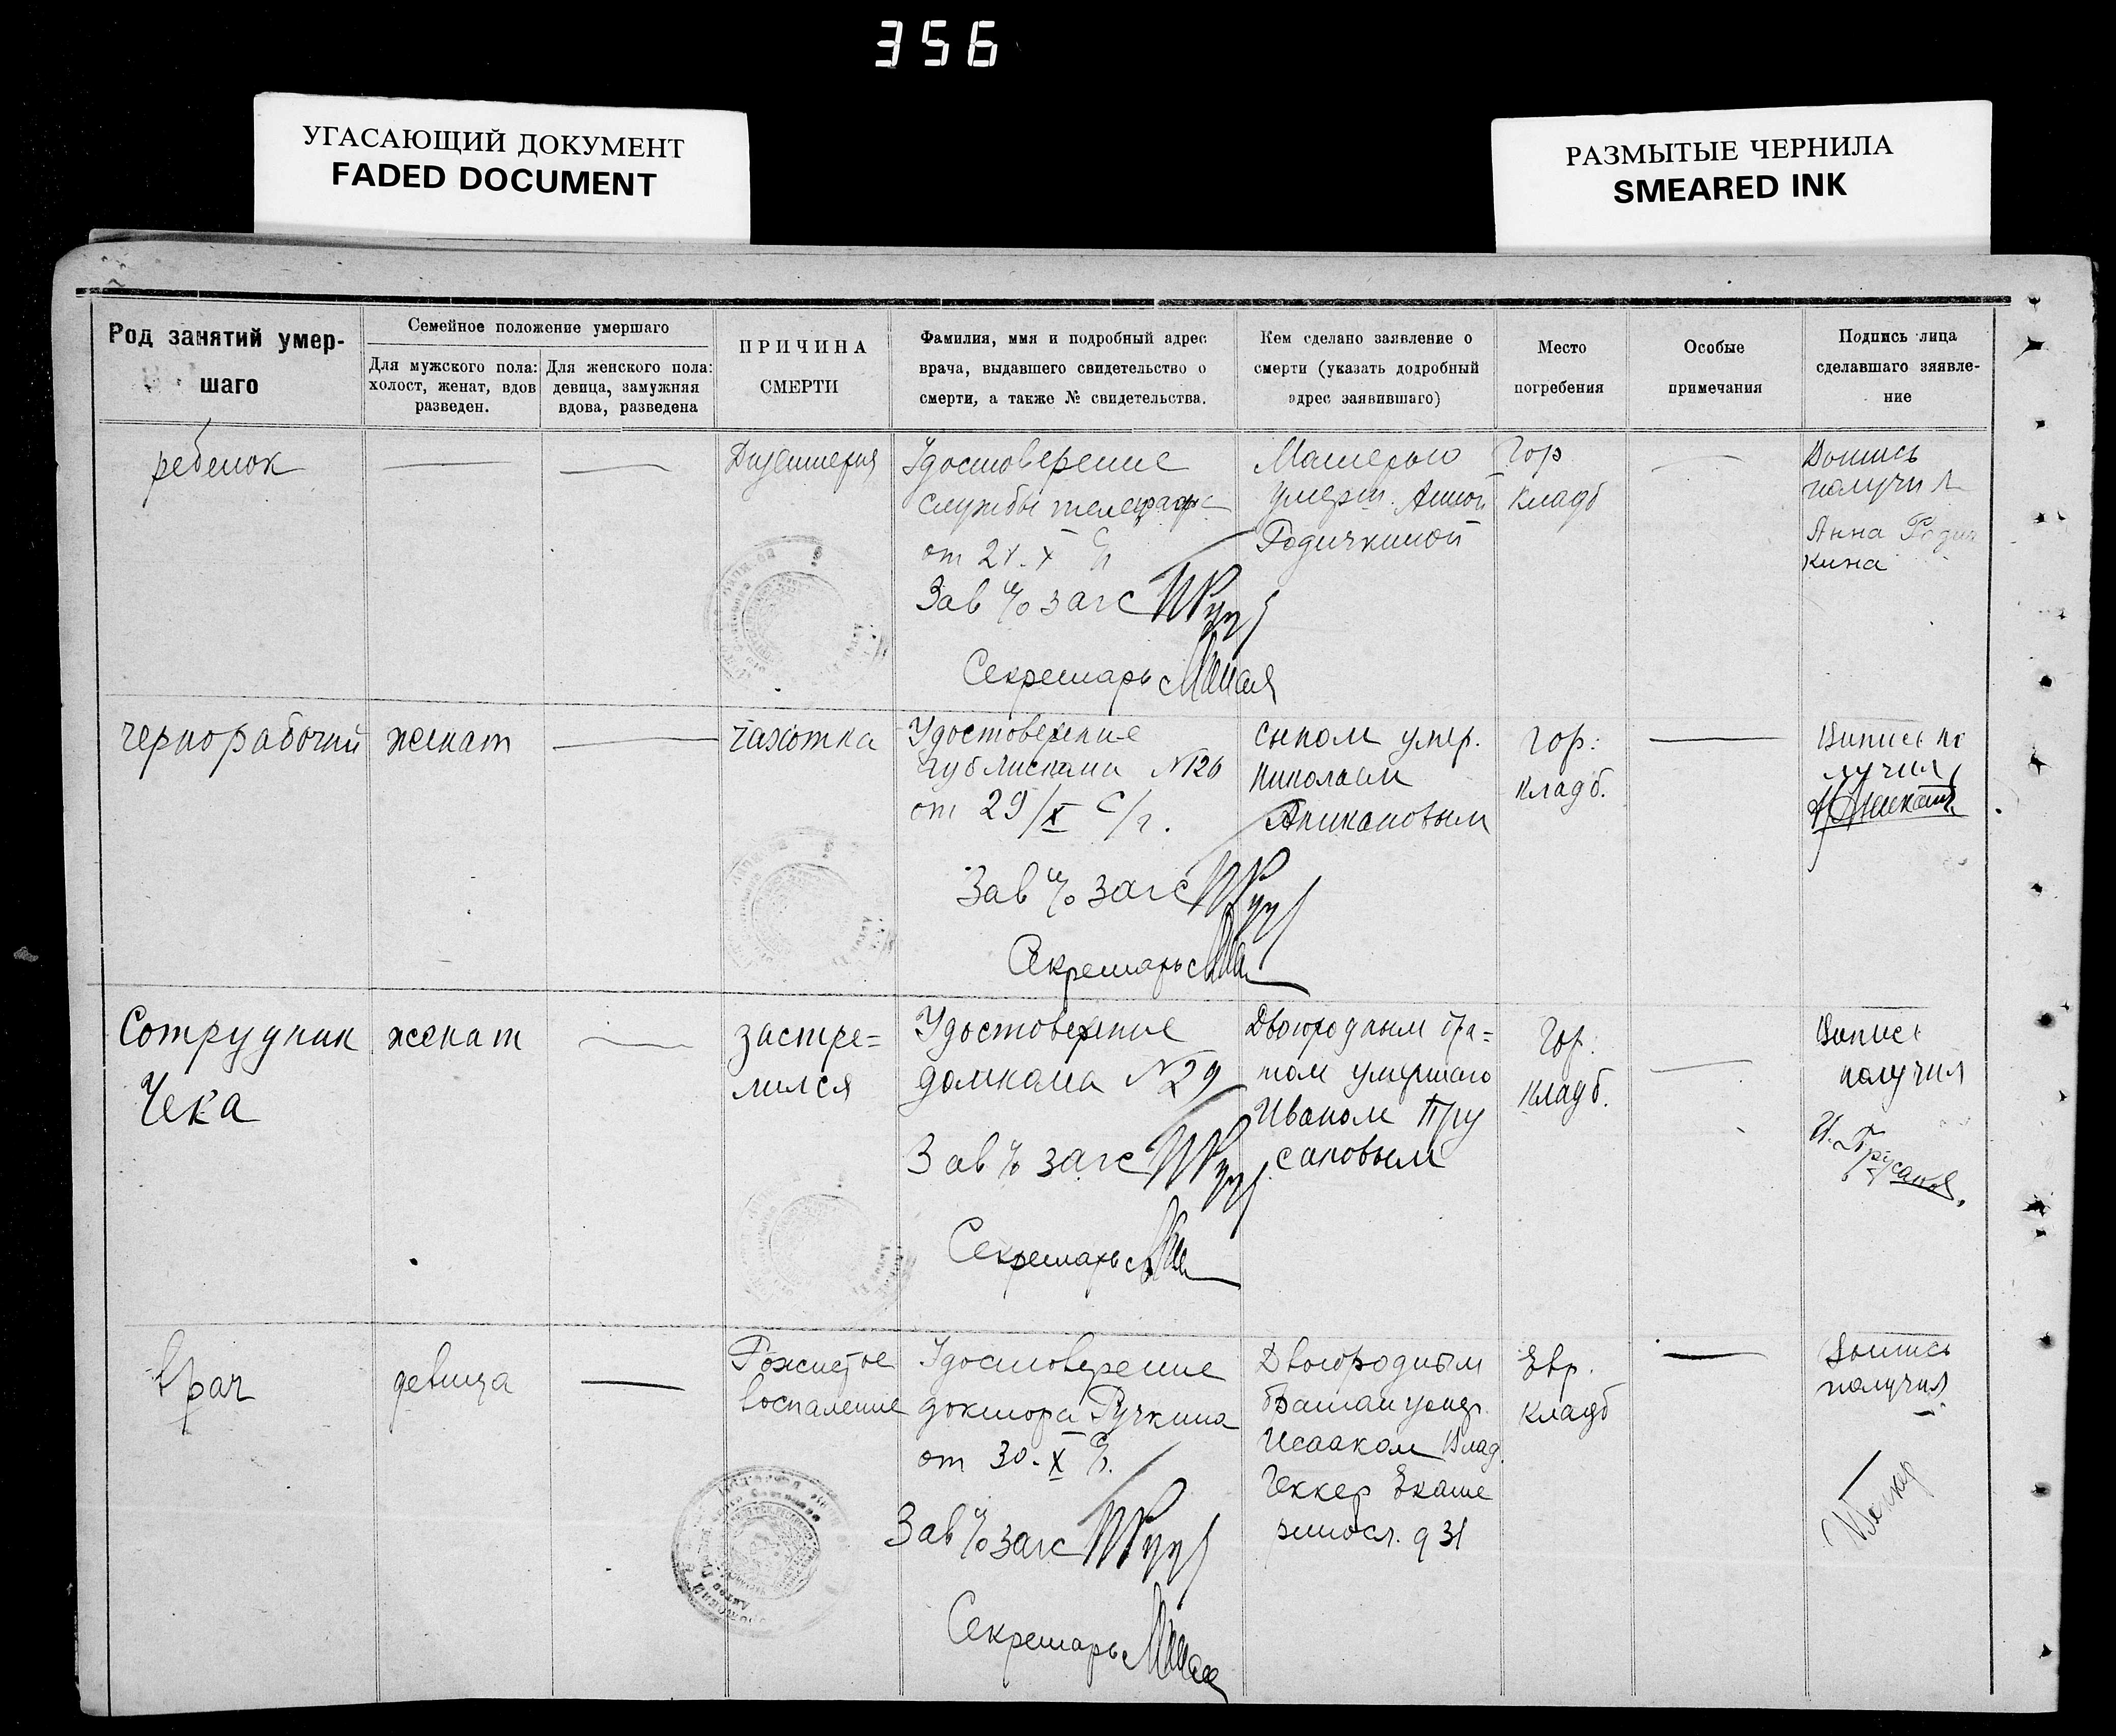 356
УГАСАЮЩИЙ ДОКУМЕНТ
FADED DOCUMENT
РАЗМЫТЫЕ ЧЕРНИЛА
SMEARED INK
Род занятий умер-
шаго
Семейное положение умершаго
Для мужского пола:
холост, женат, вдов
разведен.
Для женского пола:
девица, замужняя
вдова, разведена
ПРИЧИНА
СМЕРТИ
Фамилия, ммя и подробный адрес
врача, выдавшего свидетельство о
смерти, а также № свидетельства.
Кем сделано заявление о
смерти (указать додробный
адрес заявившаго)
Место
погребения
Особые
примечания
Подпись лица
сделавшаго зяявле-
ние
ребенок
Дизентерия
Удостоверение
службы телеграфа
от 21. X с/г
Зав п/о загс
Секретарь
Матерью
умерш. Анной
Родичкиной
Гор
кладб
Выпись
получил
Анна Родич
кина
чернорабочий
женат
чахотка
Удостоверение
Губ № 126
от 29/X с/г.
Зав п/о загс
Секретарь
сыном умер.
Николаем
Аникановым
гор:
кладб.
Выпись по
лучил
Сотрудник
Чека
женат
застре=
лился
Удостоверение
домкома № 29
Зав п/о загс
Секретарь
Двоюродным бра=
том умершаго
Иваном Пру
сановым
Гор.
кладб.
Выпись
получил
И. Прусанов.
врач
девица
Рожистое
воспаление
Удостоверение
доктора Ручкина
от 30. X с/г.
Зав п/о загс
Секретарь
Двоюродным
Братом умер.
Исааком Влад.
Геккер Екате
риносл. д 31
Евр.
кладб
Выпись
получил